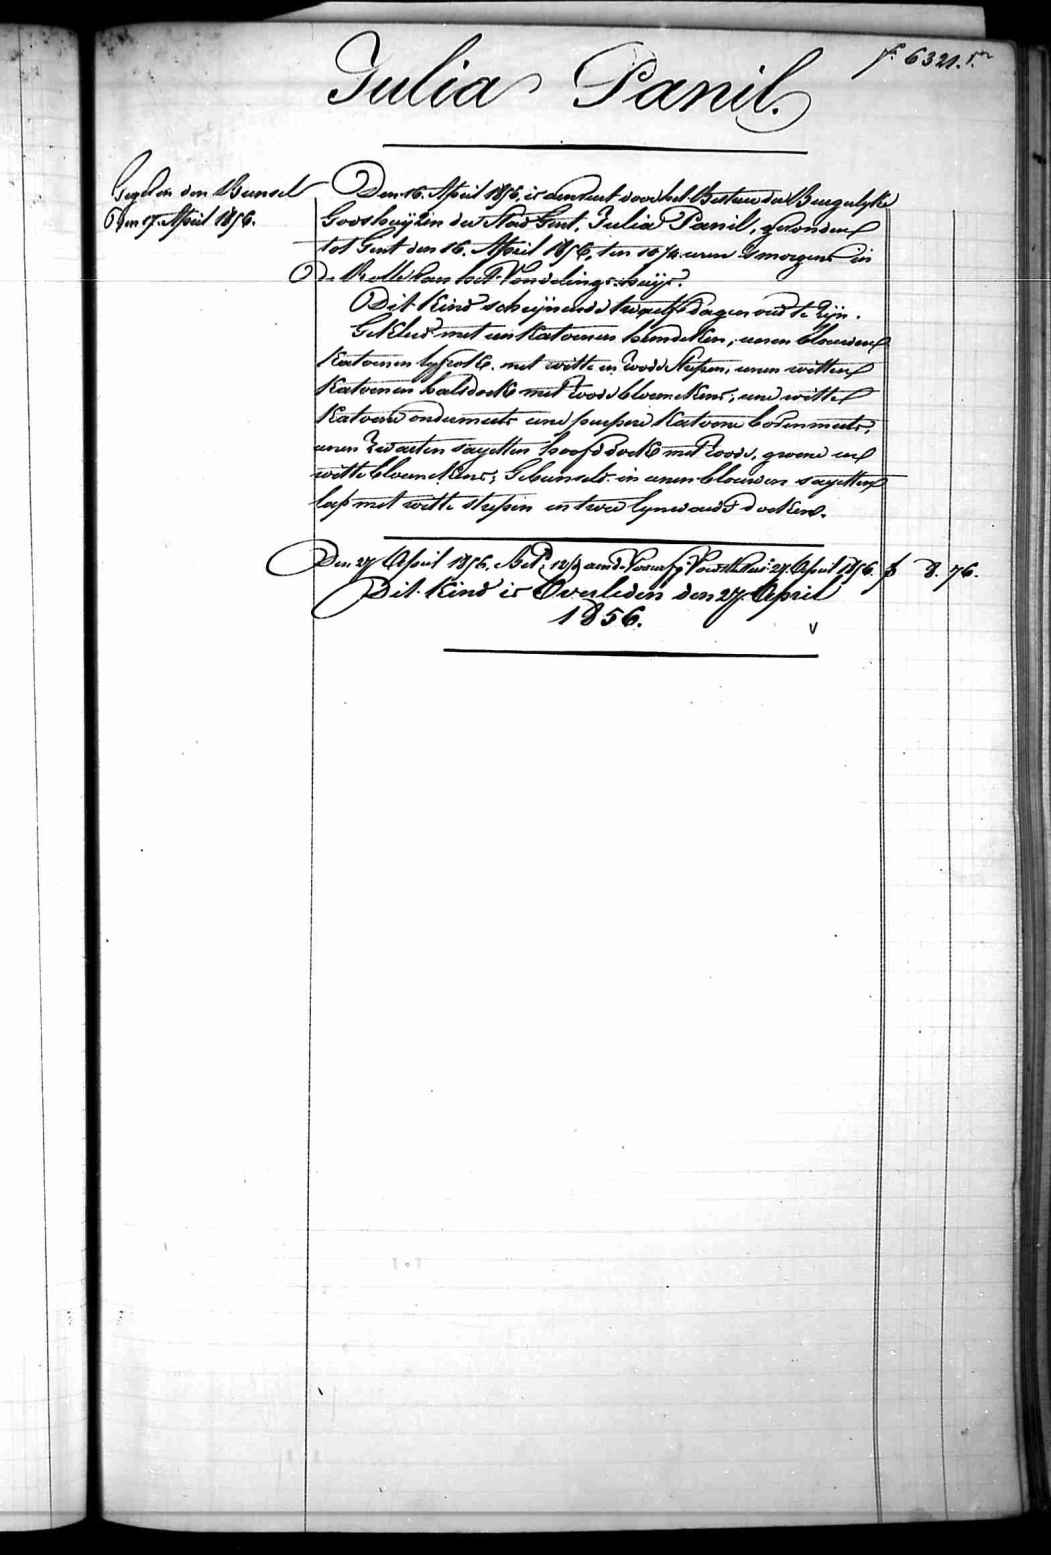 f.° 6321. r.°
Julia Panil.
Gegeven den Bunsel
Den 17. April 1856.
Den 16. April 1856, is aenveert door het Bestuer der Burgerlyke
Godshuijzen der Stad Gent, Julia Panil, gevonden
tot Gent den 16. April 1856, ten 10 1/4 uren 's morgens in
de Rolle van het Vondelingshuijs.
Dit Kind scheijnende twaelf dagen oud te zijn.
Gekleed met een Katoenen hemdeken, eenen blauwen
Katoenen lyfrok. met witte en roode strepen, eenen witten
Katoenen halsdoek met roode bloemekens, eene witte
Katoene ondermuts eene purpere Katoene bovenmuts,
eenen zwarten sayetten hoofddoek met roode, groene en
witte bloemekens; Gebunseld in eenen blauwen sayetten
lap met witte strepen en twee lynwaed doeken.
Den 27 April 1856. Bet. aen de 27. April 1856. f 8. 76.
Dit Kind is Overleden den 27. April
1856.
v